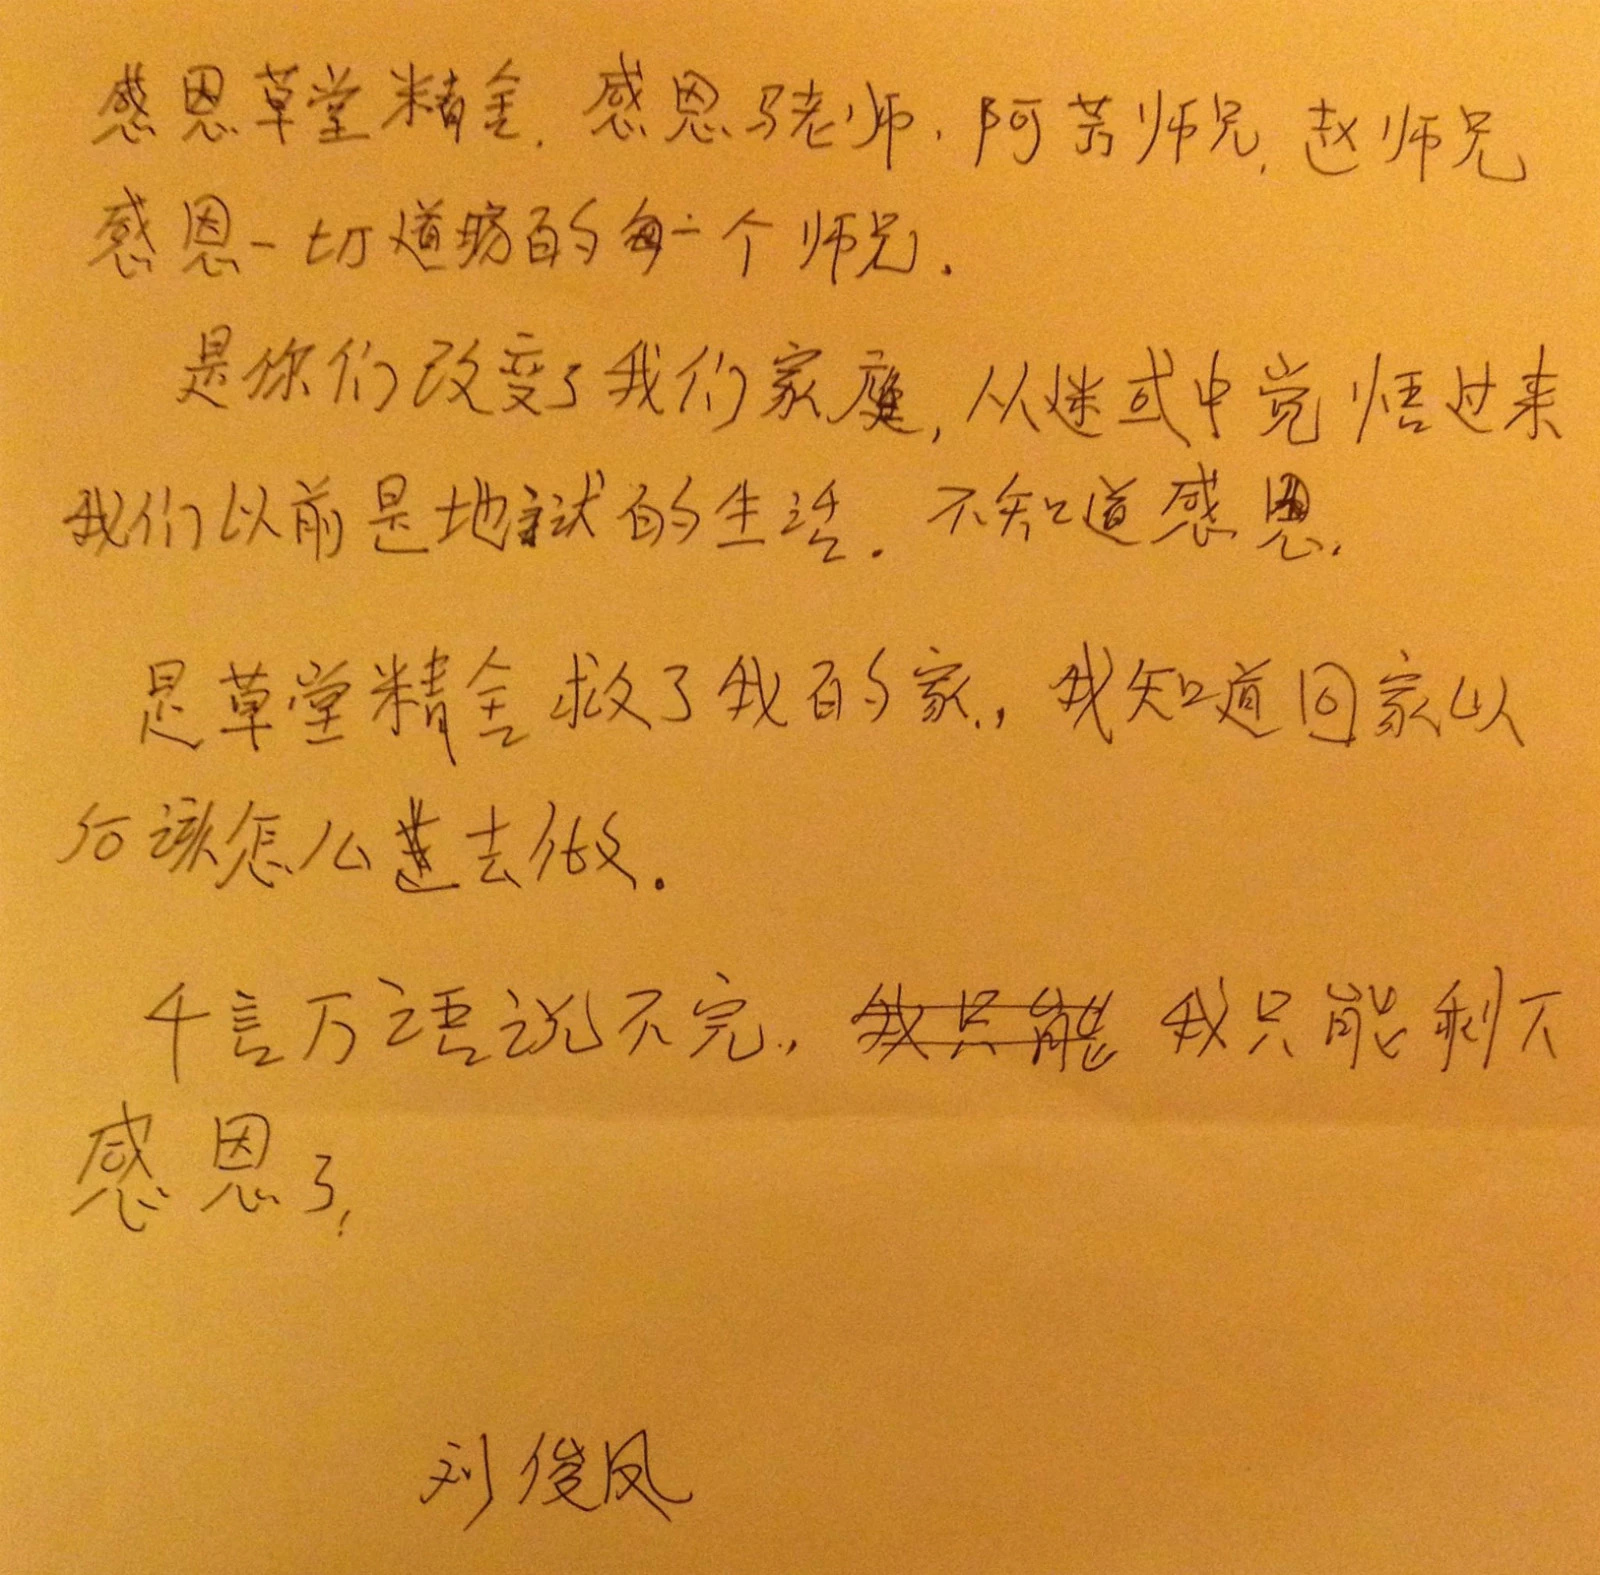 感恩草堂精舍.感恩马老师.阿芳师兄.赵师兄
感恩一切道场的每一个师兄.
是你们改变了我们家庭,从迷或中觉悟过来
我们以前是地狱的生活.不知道感恩.
是草堂精舍救了我的家.,我知道回家以
后该怎么去做.
千言万语说不完.,我只能 我只能剩下
感恩了,
刘俊凤